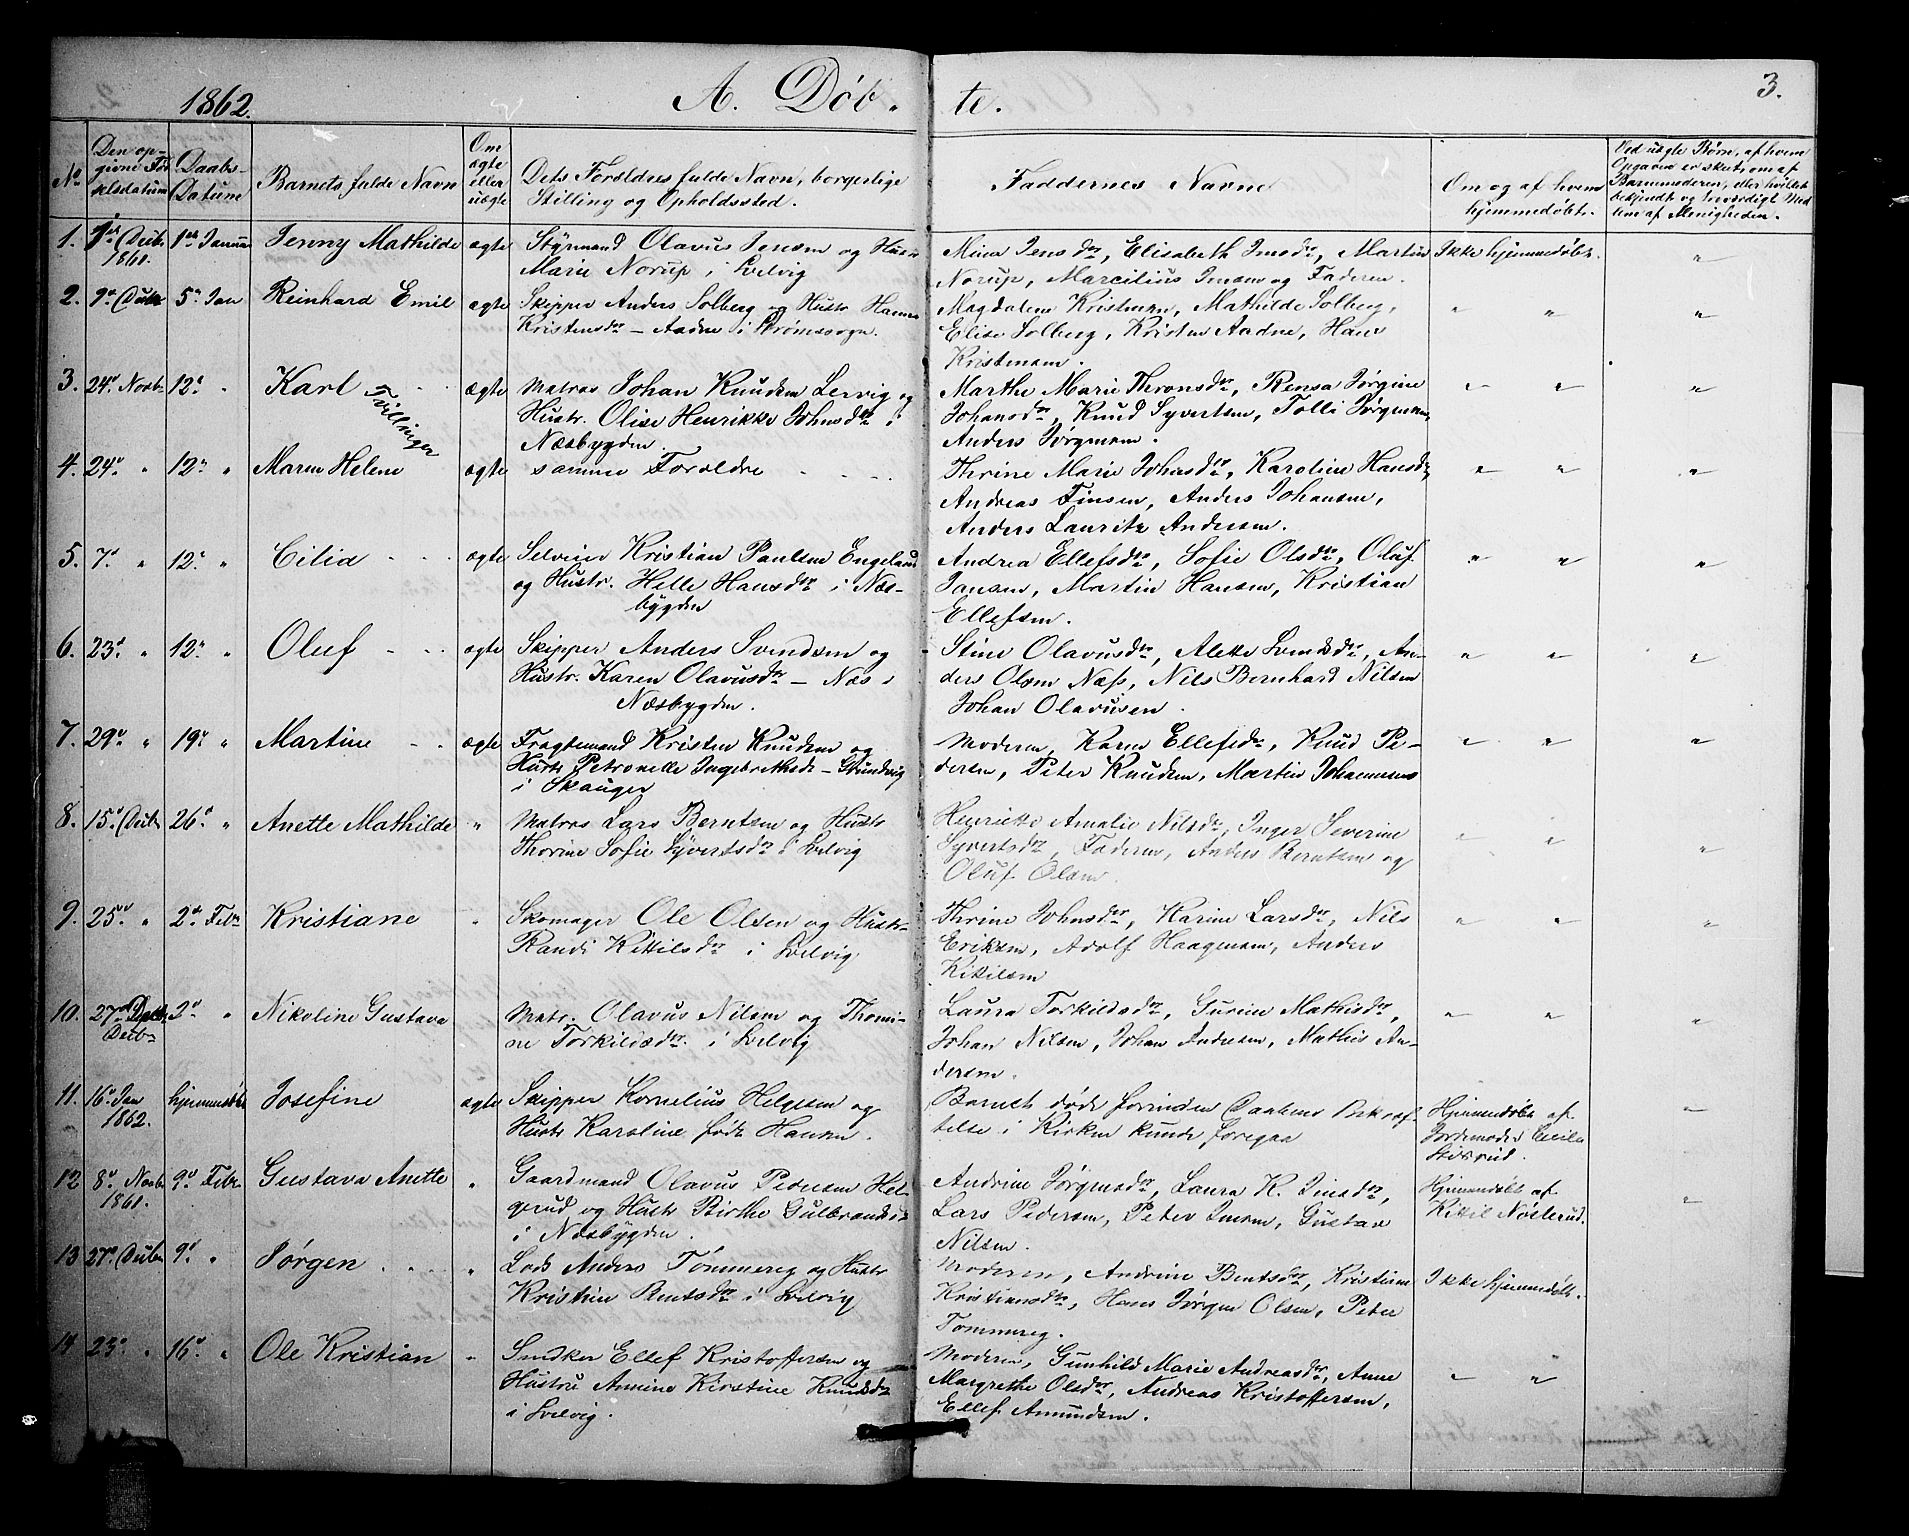 1862.
A. Døb-
te.
3.
No
Den op-
givne Fød-
selsdatum
Daabs-
Datum
Barnets fulde Navn
Om
ægte
eller
uægte
Dets Forældres fulde Navn, borgerlige
Stilling og Opholdssted.
Faddernes Navne
Om og af hvem
hjemmedøbt.
Ved uægte Børn, af hvem
Opgaven er skeet, om af
Barnemoderen, eller hvilket
bekjendt og troværdigt Med-
lem af Menigheden.
1. 1ste Decbr 1ste Januar Jenny Mathilde ægte Styrmand Olavus Jensen og Hustr
1861. Marie Norup i Svelvig
Mina Jensdr, Elisabeth Jensdr, Martin Ikke hjemmedøbt. "
Norup, Marcilius Jensen og Faderen.
2. 9de Decbr 5te Jan Reinhard Emil ægte Skipper Anders Solberg og Hustr Hanna
Kristensdr - Aadne i Strømsogn.
Magdalena Kristensen, Mathilde Solberg, " " "
Elise Solberg, Kristen Aadne, Hans
Kristensen.
3. 24d Novb 12d " Karl ægte Matros Johan Knudsen Lervig og
Tvillinger
Hustr. Olise Henrikke Johnsdr i
Næsbygden.
Marthe Marie Thronsdr, Rensa Jørgine " " "
Johansdr, Knud Syvertsen, Tolli Jørgensen,
Anders Jørgensen.
4. 24d " 12d " Maren Helene ægte samme Forældre
Thrine Marie Johnsdr, Karoline Hansdr, " " "
Andreas Finsen, Anders Johansen,
Anders Lauritz Andersen.
5. 7d " 12d " Cilia ægte Selveier Kristian Paulsen Engelund
og Hustr. Helle Hansdr i Næs-
bygden
Andrea Ellefsdr, Sofie Olsdr, Oluf " " "
Jansen, Martin Hansen, Kristian
Ellefsen.
6. 23d " 12d " Oluf ægte Skipper Anders Svendsen og
Hustr. Karen Olavusdr - Næs i
Næsbygden.
Stine Olavusdr, Alette Svendsdr, An- " " "
ders Olsen Næss, Nils Bernhard Nilsen
Johan Olavusen.
7. 29d " 19d " Martine ægte Fragtemand Kristen Knudsen og
Hustr Petronelle Ingebrethsdr - Grundvig
i Skauger
Moderen, Karen Ellefsdr, Knud Pe- " " "
dersen, Peter Knudsen, Martin Johannesen
8. 15d Decbr 26d " Anette Mathilde " Matros Lars Berntsen og Hustr
Thorine Sofie Syvertsdr i Svelvig
Henriette Amalie Nilsdr, Inger Severine " " "
Syvertsdr, Faderen, Anders Berntsen og
Oluf Olsen.
9. 25d " 2d Febr Kristiane " Skomager Ole Olsen og Hustr
Randi Kittilsdr i Svelvig
Thrine Johnsdr, Karine Larsdr, Nils " " "
Eriksen, Adolf Haagensen, Anders
Kittilsen
10. 27d 2d " Nikoline Gustava Matr. Olavus Nilsen og Thomi-
Decb ne Torkildsdr i Svelvig
Laura Torkildsdr, Gurine Mathisdr, " " "
Johan Nilsen, Johan Andresen, Mathis An-
dersen.
11. 16d Jan hjemmedøbt Josefine ægte Skipper Kornelius Helgesen og
1862. Hustr Karoline født Hansen.
Barnet døde forinden Daabens Bekræf- Hjemmedøbt af "
telse i Kirken kunde foregaa Jordemoder Cecilia
12 8d Novb 9d Febr Gustava Anette " Gaardmand Olavus Pedersen Hel-
1861. gerud og Hustr Birthe Gulbrandsdr
i Næsbygden.
Andrine Jørgensdr, Laura K. Jensdr, Hjemmedøbt af "
Lars Pedersen, Peter Jensen, Gustav Kittil Nøsterud.
Nilsen.
13 27d Decbr 9d " Jørgen " Lods Anders Tømmereg og Hustr
Kristine Berntsdr i Svelvig
Moderen, Andrine Berntsdr, Kristiane Ikke hjemmedøbt.
Kristiansdr, Hans Jørgen Olsen, Peter
Tommereg.
14 23d " 16d " Ole Kristian " Snedker Ellef Kristoffersen og
Hustru Annine Kirstine Knudsdr
i Svelvig.
Moderen, Gunhild Marie Andreasdr, Anne " "
Margrethe Olsdr, Andreas Kristoffersen,
Ellef Amundsen.